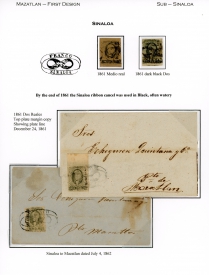 MAZATLAN – FIRST DESIGN
SUB – SINALOA
SINALOA
FRANCO
SINALOA
1861 Medio real
1861 dark black Dos
By the end of 1861 the Sinaloa ribbon cancel was used in Black, often watery
1861 Dos Reales
Top plate margin copy
Showing plate line
December 24, 1861
Mazatlan
Sinaloa to Mazatlan dated July 4, 1862